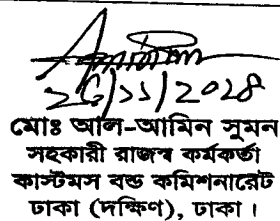 ২৫/১১/২০২৪
মোঃ আল-আমিন সুমন
সহকারী রাজস্ব কর্মকর্তা
কাস্টমস বন্ড কমিশনারেট
ঢাকা (দক্ষিণ), ঢাকা ।